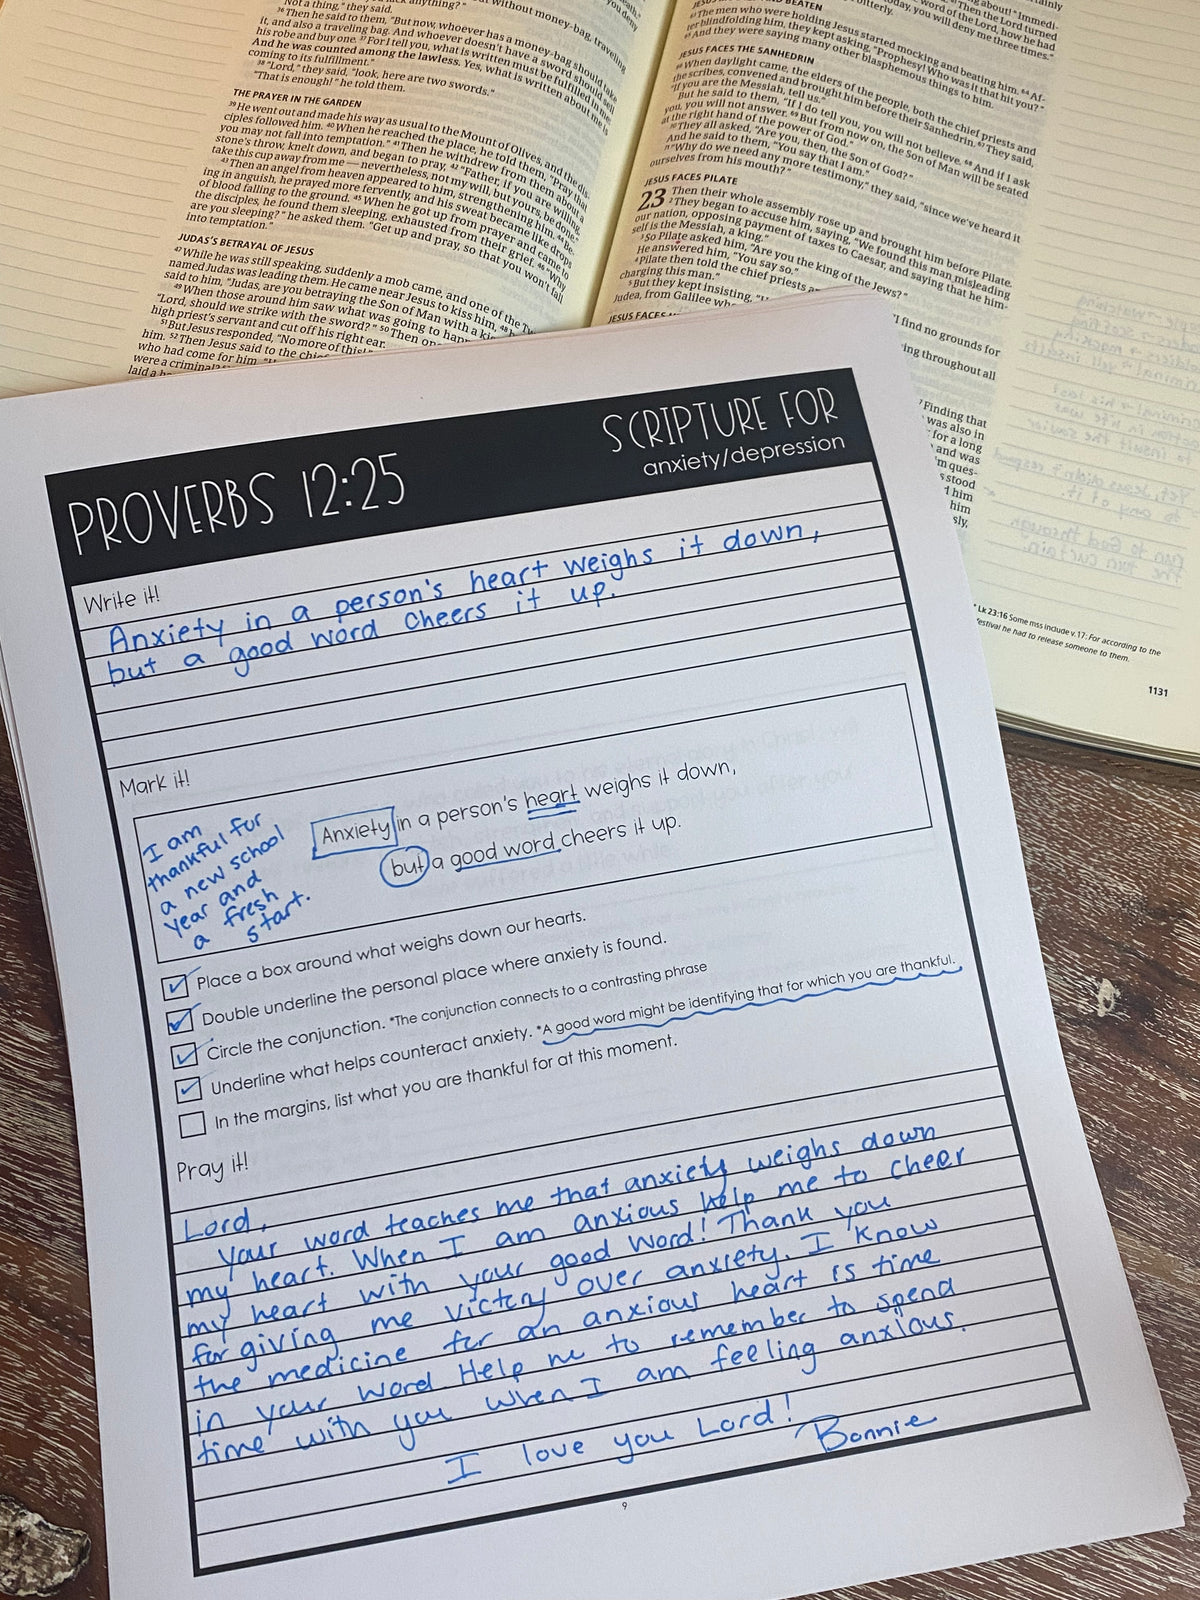 Not a thing," they said.
36 Then he said to them, "But now, whoever has a money-bag should take
it, and also a traveling bag. And whoever doesn't have a sword should sell
his robe and buy one. 37 For I tell you, what is written must be fulfilled in me:
And he was counted among the lawless. Yes, what is written about me is
coming to its fulfillment."
38 "Lord," they said, "look, here are two swords."
"That is enough!" he told them.
THE PRAYER IN THE GARDEN
39 He went out and made his way as usual to the Mount of Olives, and the dis-
ciples followed him. 40 When he reached the place, he told them, "Pray that
you may not fall into temptation." 41 Then he withdrew from them about a
stone's throw, knelt down, and began to pray, 42 "Father, if you are willing,
take this cup away from me — nevertheless, not my will, but yours, be done."
43 Then an angel from heaven appeared to him, strengthening him. 44 Be-
ing in anguish, he prayed more fervently, and his sweat became like drops
of blood falling to the ground. 45 When he got up from prayer and came to
the disciples, he found them sleeping, exhausted from their grief. 46 "Why
are you sleeping?" he asked them. "Get up and pray, so that you won't fall
into temptation."
JUDAS'S BETRAYAL OF JESUS
47 While he was still speaking, suddenly a mob came, and one of the Tw
named Judas was leading them. He came near Jesus to kiss him, 48
said to him, "Judas, are you betraying the Son of Man with a
49 When those around him saw what was going to
"Lord, should we strike with the sword?" 50 Then
high priest's servant and cut off his right ear.
51 But Jesus responded, "No more of this!"
him. 52 Then Jesus said to the
who had come for him,
were a criminal?
63 The men who were holding Jesus started mocking and beating him. 64 Af-
ter blindfolding him, they kept asking, "Prophesy! Who was it that hit you?"
65 And they were saying many other blasphemous things to him.
JESUS FACES THE SANHEDRIN
66 When daylight came, the elders of the people, both the chief priests and
the scribes, convened and brought him before their Sanhedrin. 67 They said,
"If you are the Messiah, tell us."
But he said to them, "If I do tell you, you will not believe. 68 And if I ask
you, you will not answer. 69 But from now on, the Son of Man will be seated
at the right hand of the power of God."
70 They all asked, "Are you, then, the Son of God?"
And he said to them, "You say that I am."
71 "Why do we need any more testimony," they said, "since we've heard it
ourselves from his mouth?"
JESUS FACES PILATE
23 Then their whole assembly rose up and brought him before Pilate.
2 They began to accuse him, saying, "We found this man misleading
our nation, opposing payment of taxes to Caesar, and saying that he him-
self is the Messiah, a king."
3 So Pilate asked him, "Are you the king of the Jews?"
He answered him, "You say so."
4 Pilate then told the chief priests "I find no grounds for
charging this man."
5 But they kept insisting, ing throughout all
Judea, from Galilee
JESUS FACES
7 Finding that
was also in
for a long
and was
m ques-
stood
him
him
sly,
* Lk 23:16 Some mss include v. 17: For according to the
festival he had to release someone to them.
1131
PROVERBS 12:25
SCRIPTURE FOR
anxiety/depression
Write it!
Anxiety in a person's heart weighs it down,
but a good word cheers it up.
Mark it!
I am
thankful for
a new school
year and
a fresh
start.
Anxiety in a person's heart weighs it down,
but a good word cheers it up.
Place a box around what weighs down our hearts.
Double underline the personal place where anxiety is found.
Circle the conjunction. *The conjunction connects to a contrasting phrase
Underline what helps counteract anxiety. *A good word might be identifying that for which you are thankful.
In the margins, list what you are thankful for at this moment.
Pray it!
Lord,
Your word teaches me that anxiety weighs down
my heart. When I am anxious help me to cheer
my heart with your good word! Thank you
for giving me victory over anxiety. I know
the medicine for an anxious heart is time
in your word. Help me to remember to spend
time with you when I am feeling anxious.
I love you Lord!
Bonnie
9